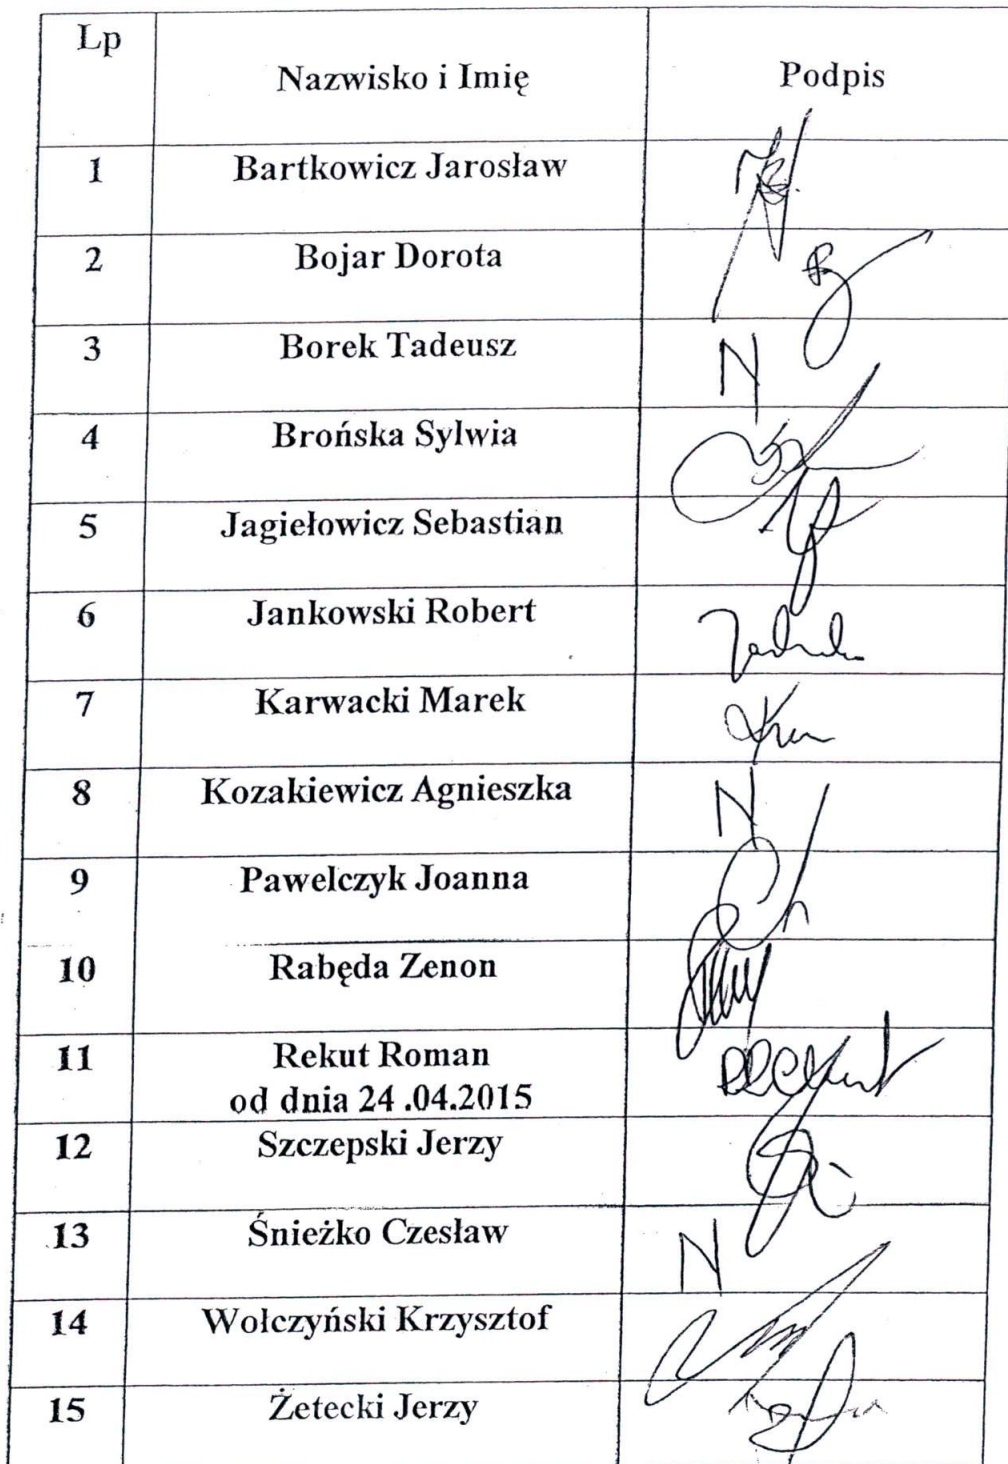 Lp Nazwisko i Imię Podpis
1 Bartkowicz Jarosław
2 Bojar Dorota
3 Borek Tadeusz N
4 Brońska Sylwia
5 Jagiełowicz Sebastian
6 Jankowski Robert
7 Karwacki Marek
8 Kozakiewicz Agnieszka N
9 Pawelczyk Joanna
10 Rabęda Zenon
11 Rekut Roman
od dnia 24 .04.2015
12 Szczepski Jerzy
13 Śnieżko Czesław N
14 Wołczyński Krzysztof
15 Żetecki Jerzy